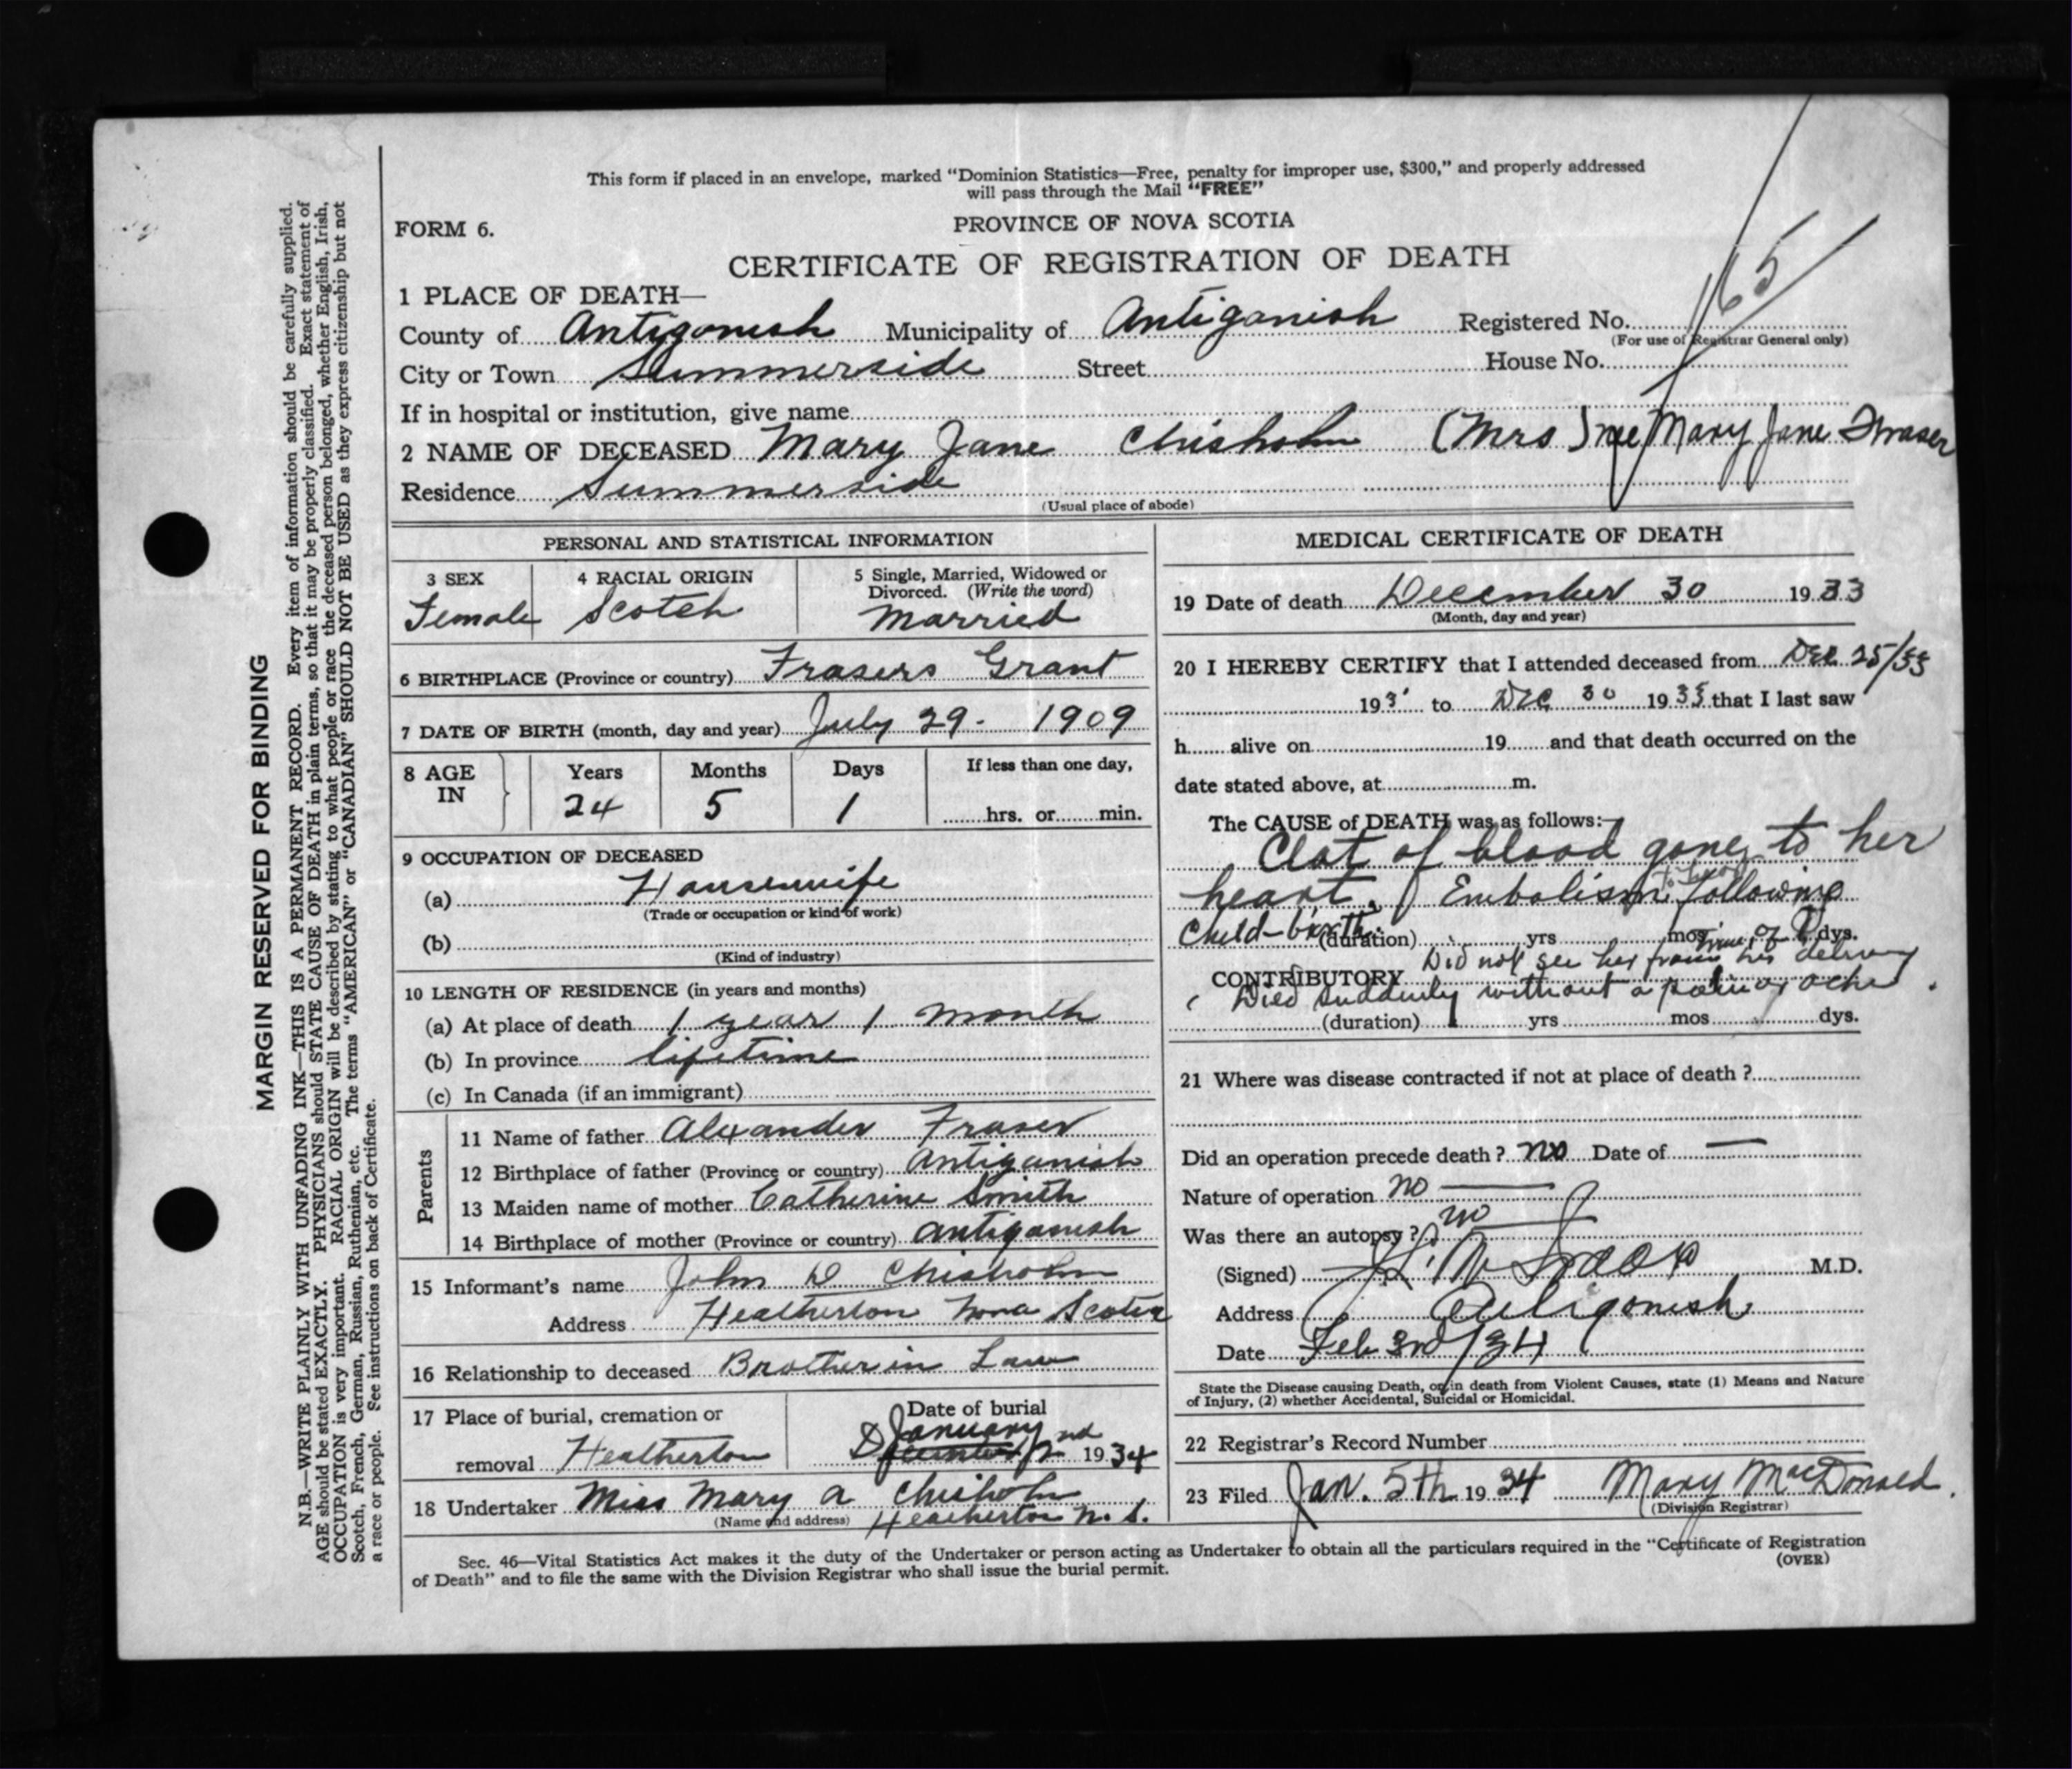 This form if placed in an envelope, marked “Dominion Statistics—Free, penalty for improper use, $300,” and properly addressed
will pass through the Mail “FREE”
FORM 6.
PROVINCE OF NOVA SCOTIA
CERTIFICATE OF REGISTRATION OF DEATH
1 PLACE OF DEATH—
County of Antigonish Municipality of Antiganish Registered No. 165
(For use of Registrar General only)
City or Town Summerside Street House No.
If in hospital or institution, give name
2 NAME OF DECEASED Mary Jane Chisholm (Mrs) nee Mary Jane Fraser
Residence Summerside
(Usual place of abode)
PERSONAL AND STATISTICAL INFORMATION
3 SEX 4 RACIAL ORIGIN 5 Single, Married, Widowed or
Divorced. (Write the word)
Female Scotch Married
6 BIRTHPLACE (Province or country) Frasers Grant
7 DATE OF BIRTH (month, day and year) July 29 - 1909
8 AGE IN Years Months Days If less than one day,
24 5 1 hrs. or min.
9 OCCUPATION OF DECEASED
(a) Housewife
(Trade or occupation or kind of work)
(b)
(Kind of industry)
10 LENGTH OF RESIDENCE (in years and months)
(a) At place of death 1 year 1 month
(b) In province lifetime
(c) In Canada (if an immigrant)
Parents
11 Name of father Alexander Fraser
12 Birthplace of father (Province or country) Antiganish
13 Maiden name of mother Catherine Smith
14 Birthplace of mother (Province or country) Antiganish
15 Informant's name John D Chisholm
Address Heatherton Nova Scotia
16 Relationship to deceased Brother in Law
17 Place of burial, cremation or
removal Heatherton
Date of burial
January
2nd 1934
18 Undertaker Miss Mary A Chisholm
(Name and address) Heatherton N. S.
MEDICAL CERTIFICATE OF DEATH
19 Date of death December 30 1933
(Month, day and year)
20 I HEREBY CERTIFY that I attended deceased from Dec 25/33
193 to Dec 30 1933 that I last saw
h alive on 19 and that death occurred on the
date stated above, at m.
The CAUSE of DEATH was as follows:—
Clot of blood gone to her
heart, Embolism following
Child-birth
(duration) yrs mos dys.
time of
Did not see her from her delivery
CONTRIBUTORY
Died suddenly without a pain or ache.
(duration) yrs mos dys.
21 Where was disease contracted if not at place of death ?
Did an operation precede death ? no Date of —
Nature of operation no —
Was there an autopsy ? no
(Signed) M.D.
Address Antigonish
Date Feb 3rd/34
State the Disease causing Death, or in death from Violent Causes, state (1) Means and Nature
of Injury, (2) whether Accidental, Suicidal or Homicidal.
22 Registrar's Record Number
23 Filed Jan. 5th 1934 Mary MacDonald.
(Division Registrar)
Sec. 46—Vital Statistics Act makes it the duty of the Undertaker or person acting as Undertaker to obtain all the particulars required in the “Certificate of Registration
of Death” and to file the same with the Division Registrar who shall issue the burial permit.
(OVER)
MARGIN RESERVED FOR BINDING
N.B.—WRITE PLAINLY WITH UNFADING INK—THIS IS A PERMANENT RECORD. Every item of information should be carefully supplied.
AGE should be stated EXACTLY. PHYSICIANS should STATE CAUSE OF DEATH in plain terms, so that it may be properly classified. Exact statement of
OCCUPATION is very important. RACIAL ORIGIN will be described by stating to what people or race the deceased person belonged, whether English, Irish,
Scotch, French, German, Russian, Ruthenian, etc. The terms “AMERICAN” or “CANADIAN” SHOULD NOT BE USED as they express citizenship but not
a race or people. See instructions on back of Certificate.